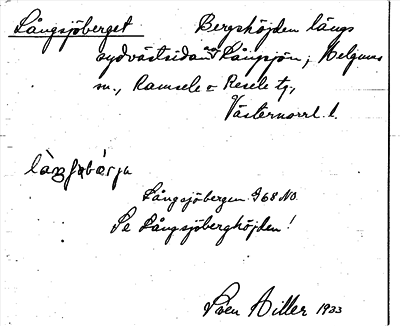 Långsjöberget Bergshöjden längs
sydvästsidan av Långsjön; Helgums
sn., Ramsele o Resele tg,
Västernorrl. l.
Långsjöbergen G 68 NO.
Se Långsjöberghöjden!
Sven Hiller 1933